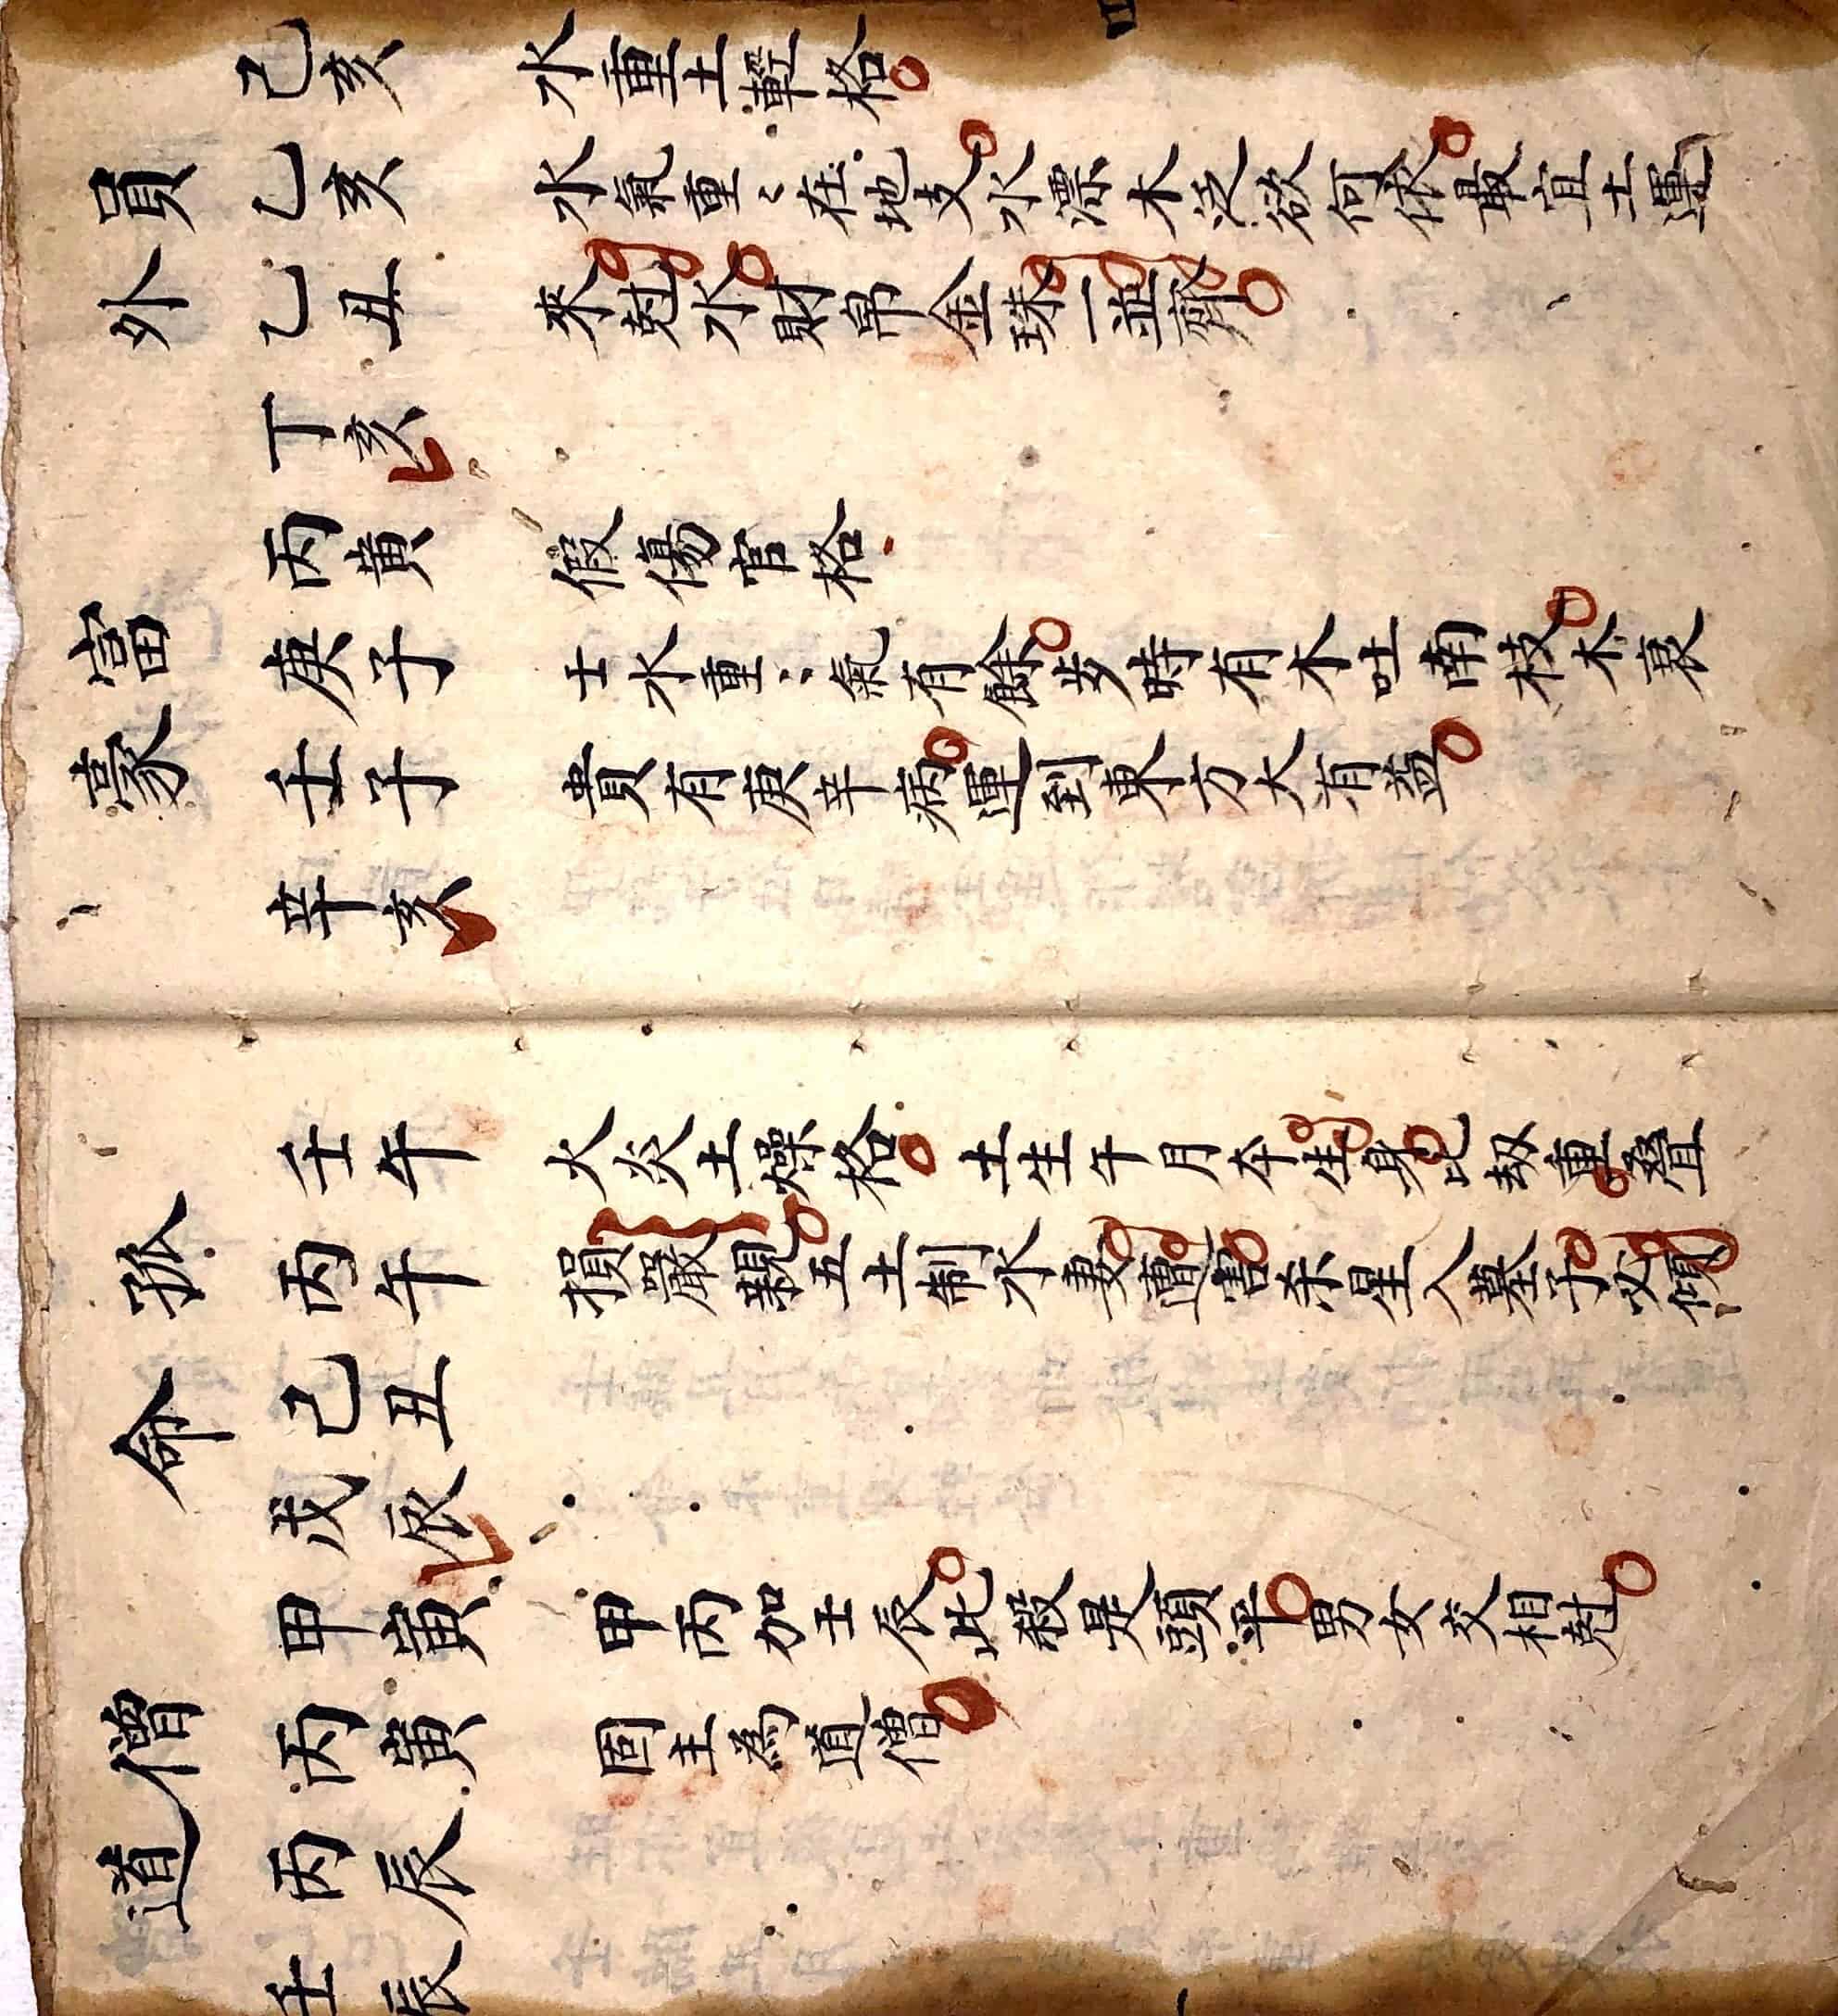 己亥 水重土輕格
員 乙亥 水氣重々在地支水漂木泛欲何依最宜土運
外 己丑 來尅水財帛金珠一並齊
丁亥
丙寅 假傷官格
富 庚子 土水重々氣有餘步時有木吐南枝木衰
豪 壬子 貴有庚辛病運到東方大有益
辛亥
壬午 火炎土燥格 土生午月本生身比刼重叠
孤 丙午 損嚴親五土制水妻遭害杀星入墓子必傾
命 己丑
戊辰
甲寅 甲丙加壬辰此殺是頭平男女交相尅
僧 丙寅 固主為道僧
道 丙辰
壬辰